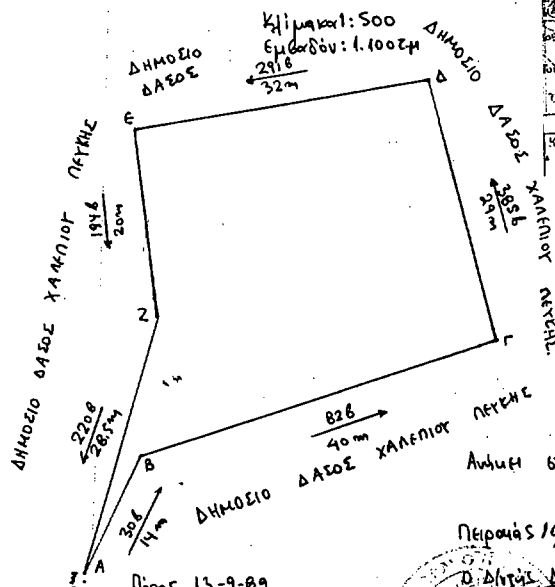 Κλίμακα 1:500
Εμβαδόν: 1.100τμ
ΔΗΜΟΣΙΟ
ΔΑΣΟΣ
291β
32m
ΔΗΜΟΣΙΟ ΔΑΣΟΣ ΧΑΛΕΠΙΟΥ ΠΕΥΚΗΣ
Δ
Ε
385β
29m
194β
20m
ΔΗΜΟΣΙΟ ΔΑΣΟΣ ΧΑΛΕΠΙΟΥ ΠΕΥΚΗΣ
Ζ
Γ
220β
28.5m
Β
82β
40m
ΔΗΜΟΣΙΟ ΔΑΣΟΣ ΧΑΛΕΠΙΟΥ ΠΕΥΚΗΣ
30β
14m
Α
Πειραιάς
13-9-89